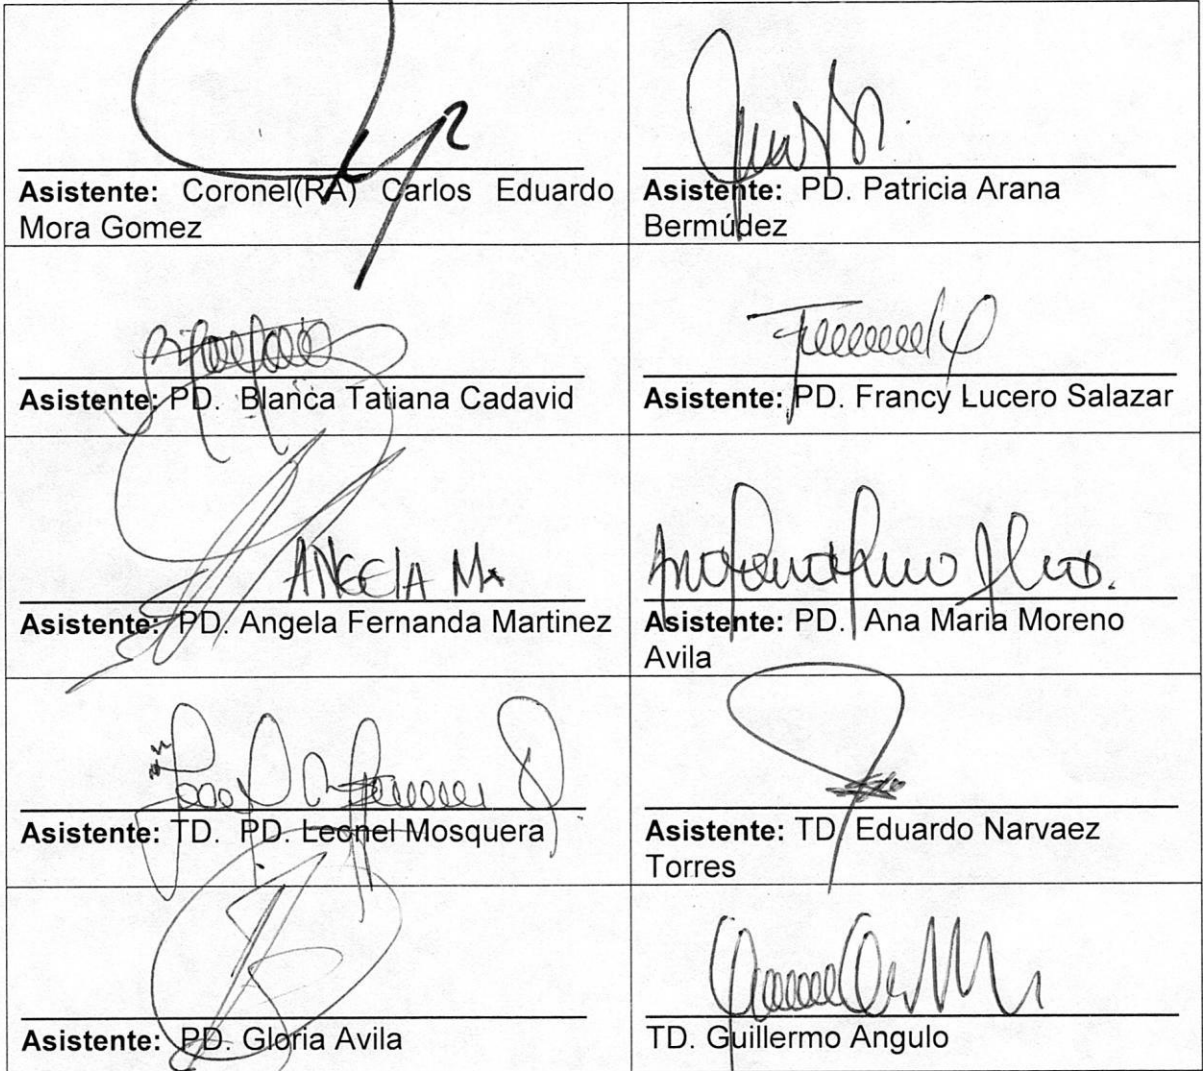 Asistente: Coronel(RA) Carlos Eduardo
Mora Gomez
Asistente: PD. Patricia Arana
Bermúdez
Asistente: PD. Blanca Tatiana Cadavid
Asistente: PD. Francy Lucero Salazar
ANGELA M
Asistente: PD. Angela Fernanda Martinez
Asistente: PD. Ana Maria Moreno
Avila
Asistente: TD. PD. Leonel Mosquera
Asistente: TD Eduardo Narvaez
Torres
Asistente: PD. Gloria Avila
TD. Guillermo Angulo